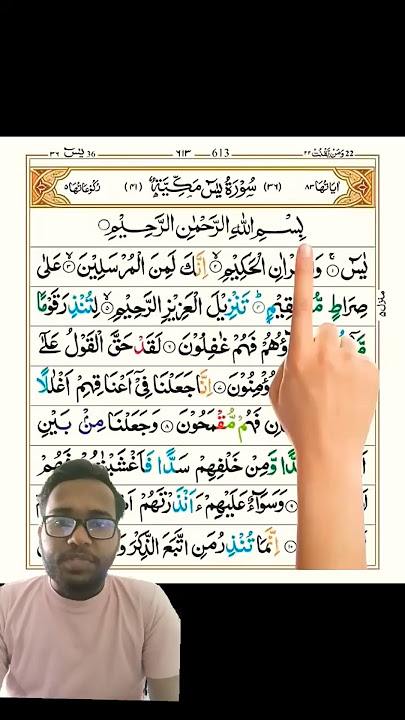 ٣٦ يٰسٓ 36 ٦١٣ 613 وَمَنْ يَّقْنُتْ ٢٢ 22
اٰيَاتُهَا ٨٣ (٣٦) سُوْرَةُ يٰسٓ مَكِّيَّةٌ (٤١) رُكُوْعَاتُهَا ٥
بِسْمِ اللهِ الرَّحْمٰنِ الرَّحِيْمِ
يٰسٓ ١ الْحَكِيْمِ ٢ اِنَّكَ لَمِنَ الْمُرْسَلِيْنَ ٣ عَلٰى
صِرَاطٍ تَنْزِيْلَ الْعَزِيْزِ الرَّحِيْمِ ٥ لِتُنْذِرَ قَوْمًا
فَهُمْ غٰفِلُوْنَ ٦ لَقَدْ حَقَّ الْقَوْلُ عَلٰٓى
اِنَّا جَعَلْنَا فِيْٓ اَعْنَاقِهِمْ اَغْلٰلًا
فَهُمْ مُّقْمَحُوْنَ ٨ وَجَعَلْنَا مِنْۢ بَيْنِ
وَّمِنْ خَلْفِهِمْ سَدًّا فَاَغْشَيْنٰهُمْ فَهُمْ
وَسَوَآءٌ عَلَيْهِمْ ءَاَنْذَرْتَهُمْ
اِنَّمَا تُنْذِرُ مَنِ اتَّبَعَ الذِّكْرَ